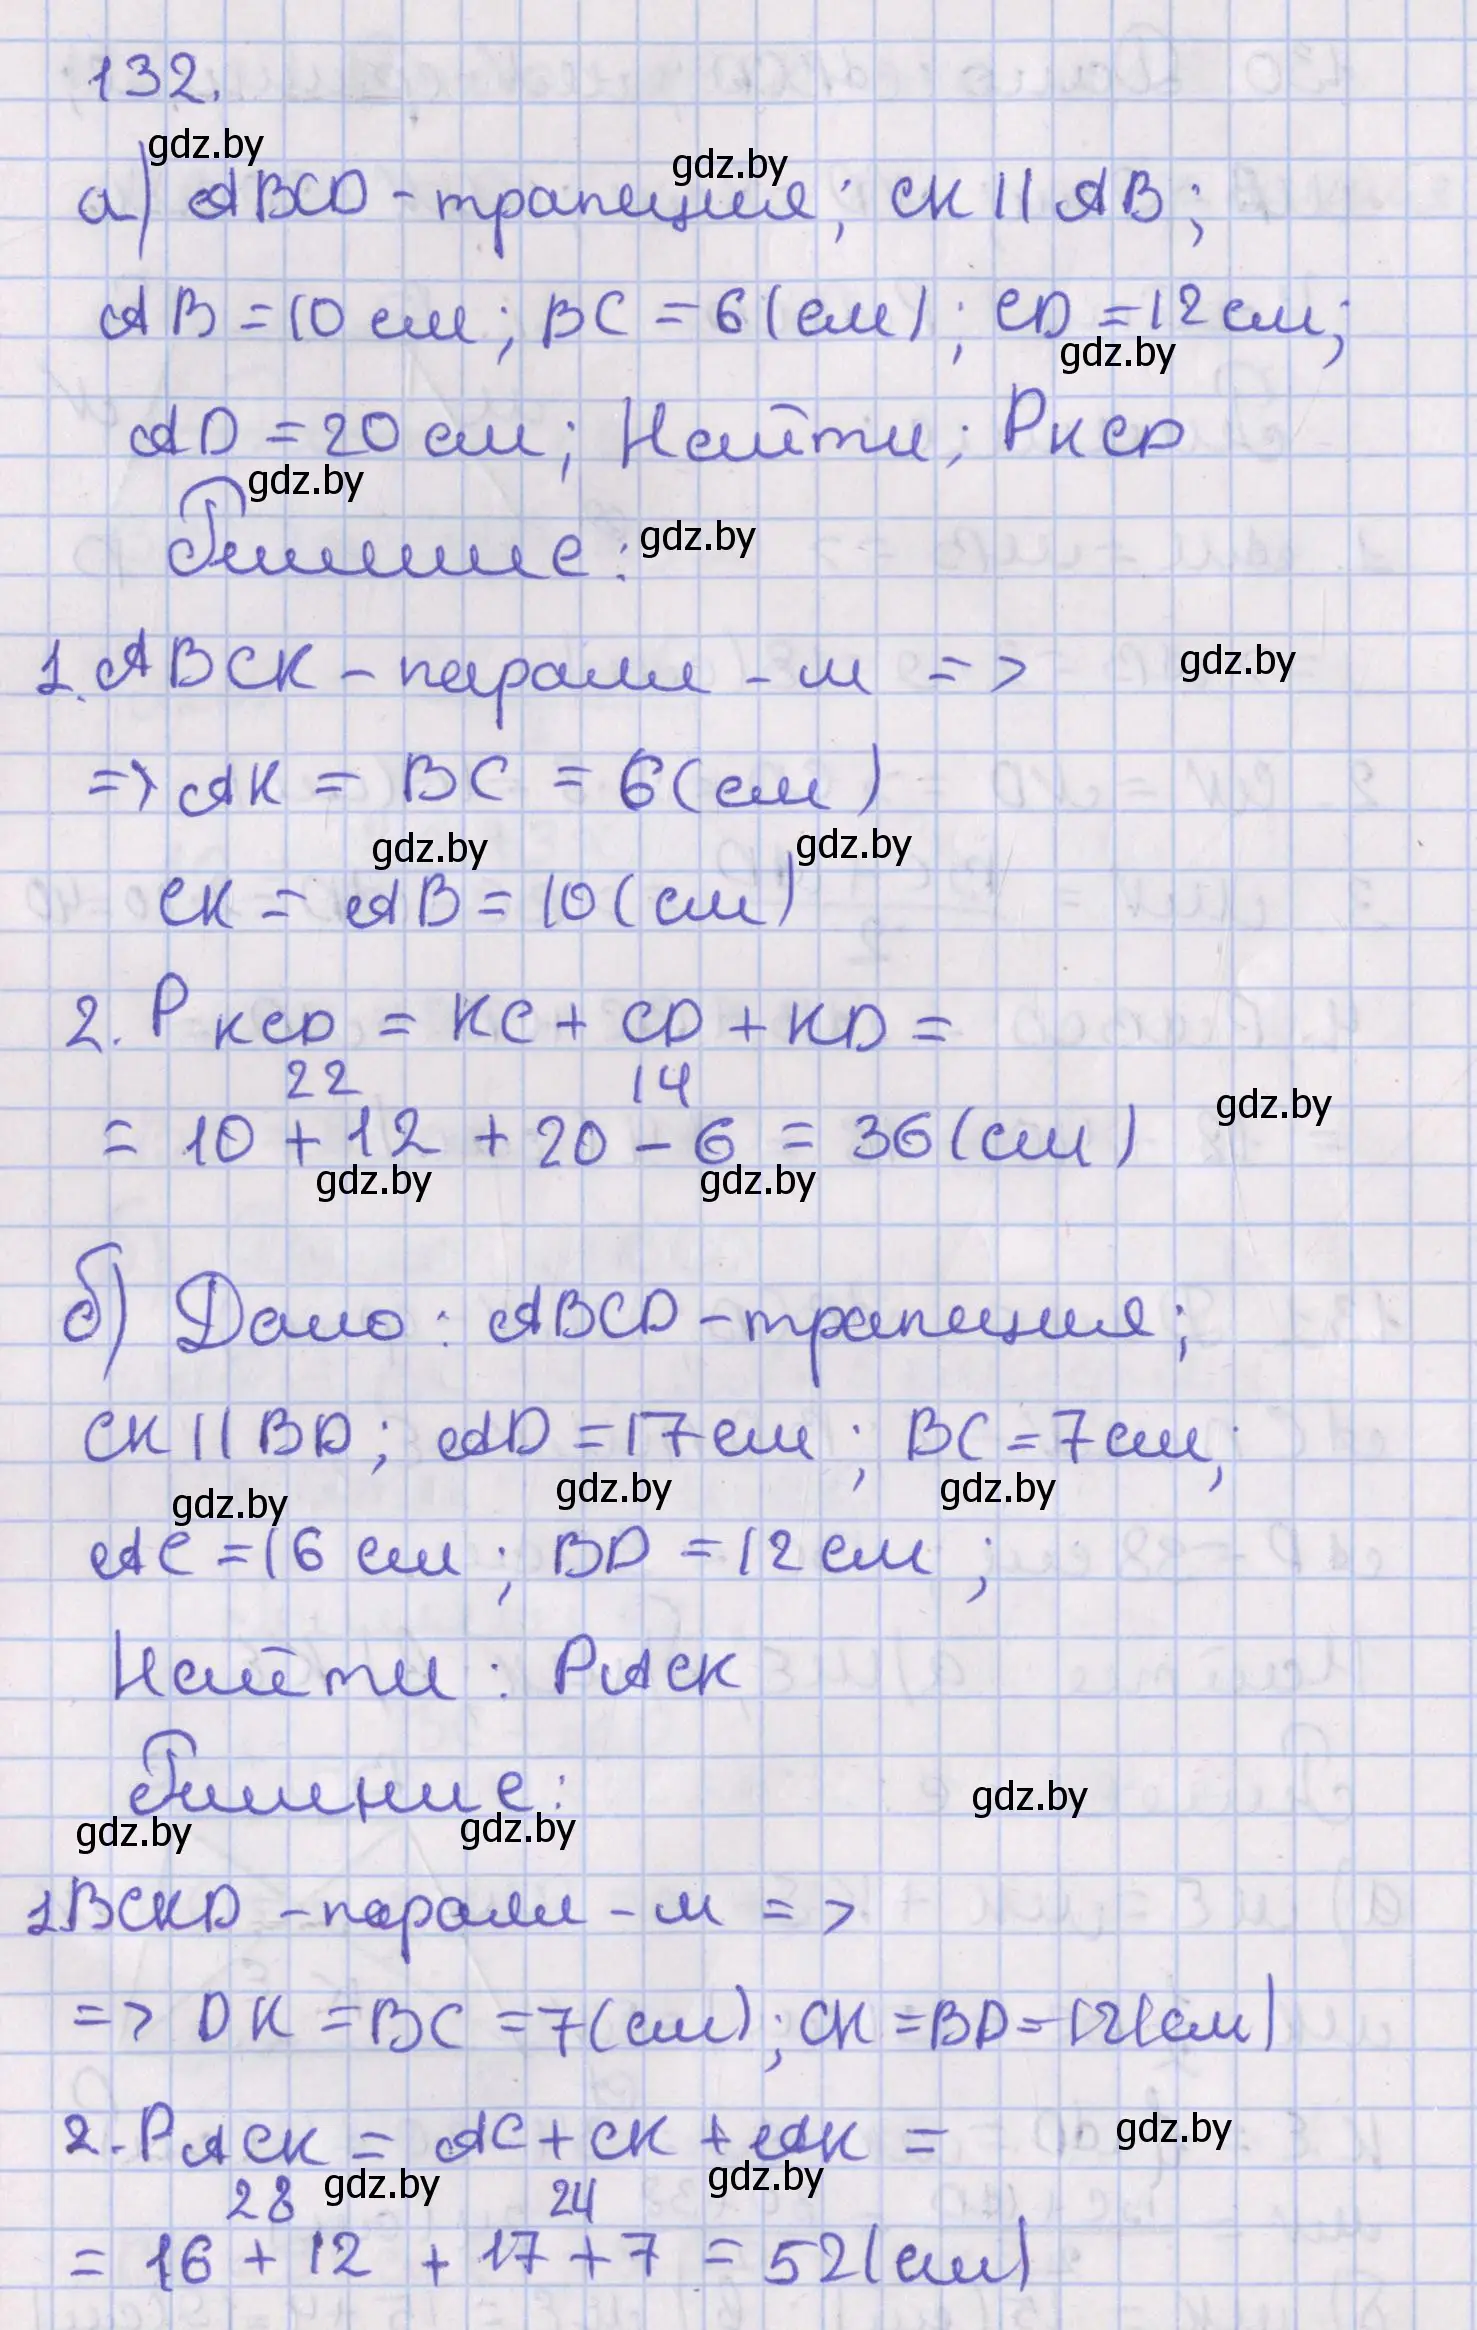 132.
gdz.by
gdz.by
а) ABCD - трапеция; CK || AB;
AB = 10 см; BC = 6 (см); CD = 12 см;
gdz.by
AD = 20 см; Найти; PKCD
gdz.by
Решение:
gdz.by
1. ABCK - паралл - м =>
gdz.by
=> AK = BC = 6 (см)
gdz.by
gdz.by
CK = AB = 10 (см)
2. PKCD = KC + CD + KD =
22 14
= 10 + 12 + 20 - 6 = 36 (см)
gdz.by
gdz.by
gdz.by
б) Дано: ABCD - трапеция;
CK || BD; AD = 17 см; BC = 7 см;
gdz.by
gdz.by
gdz.by
AC = 16 см; BD = 12 см;
Найти: PACK
Решние:
gdz.by
gdz.by
gdz.by
1. BCKD - паралл - м =>
=> DK = BC = 7 (см); CK = BD = 12 (см)
2. PACK = AC + CK + AK =
gdz.by
28 24
gdz.by
gdz.by
= 16 + 12 + 17 + 7 = 52 (см)